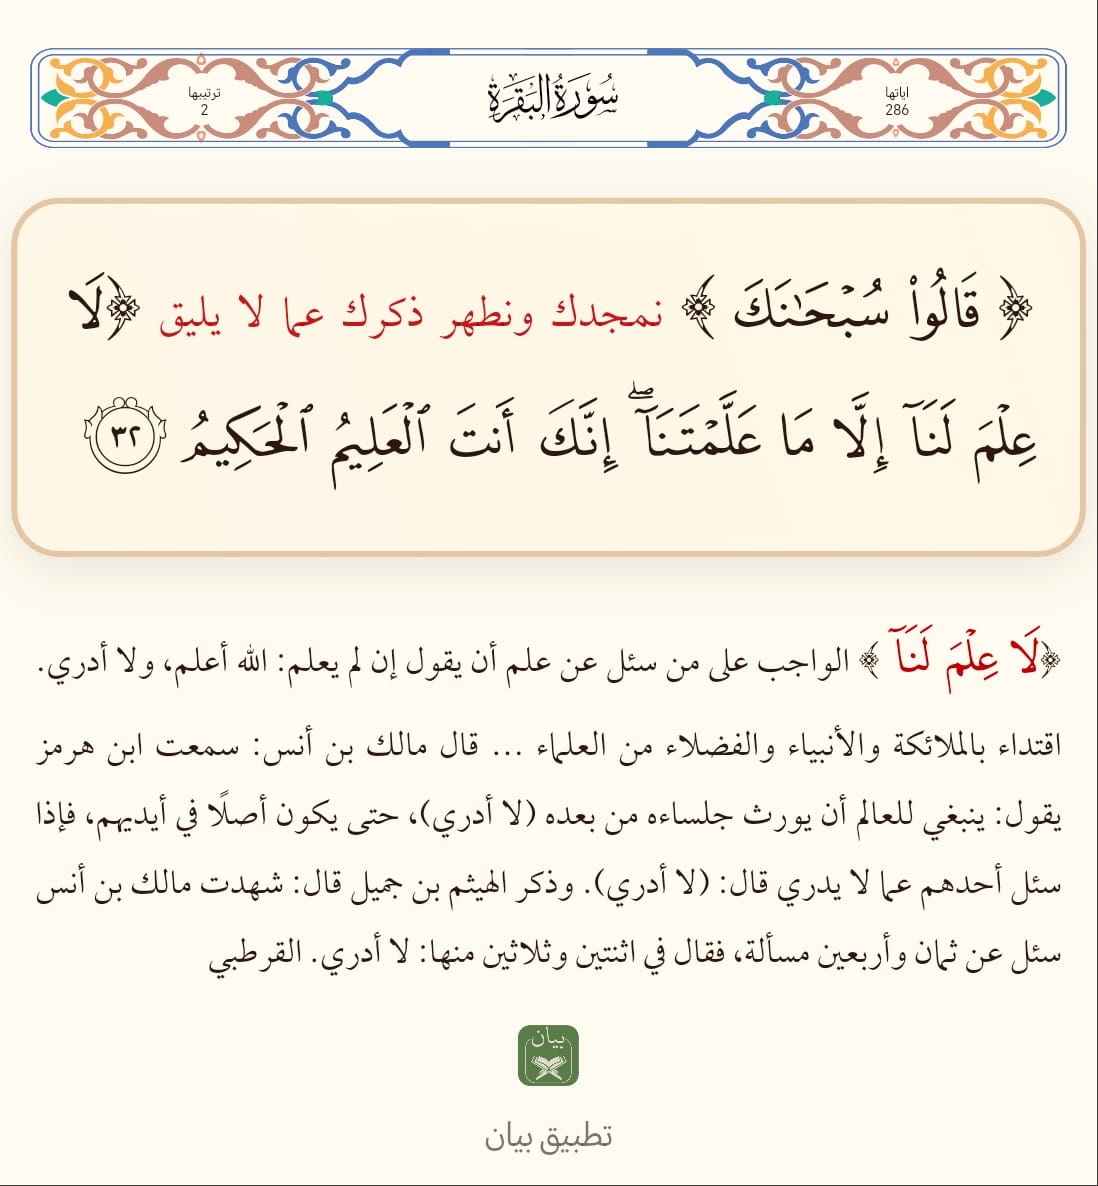 اياتها
286
سُورَةُ البَقَرَةِ
ترتيبها
2
﴿ قَالُوا۟ سُبْحَـٰنَكَ ﴾ نمجدك ونطهر ذكرك عما لا يليق ﴿لَا
عِلْمَ لَنَآ إِلَّا مَا عَلَّمْتَنَآ ۖ إِنَّكَ أَنتَ ٱلْعَلِيمُ ٱلْحَكِيمُ ٣٢
﴿لَا عِلْمَ لَنَآ ﴾ الواجب على من سئل عن علم أن يقول إن لم يعلم: الله أعلم، ولا أدري.
اقتداء بالملائكة والأنبياء والفضلاء من العلماء ... قال مالك بن أنس: سمعت ابن هرمز
يقول: ينبغي للعالم أن يورث جلساءه من بعده (لا أدري)، حتى يكون أصلًا في أيديهم، فإذا
سئل أحدهم عما لا يدري قال: (لا أدري). وذكر الهيثم بن جميل قال: شهدت مالك بن أنس
سئل عن ثمان وأربعين مسألة، فقال في اثنتين وثلاثين منها: لا أدري. القرطبي
بيان
تطبيق بيان